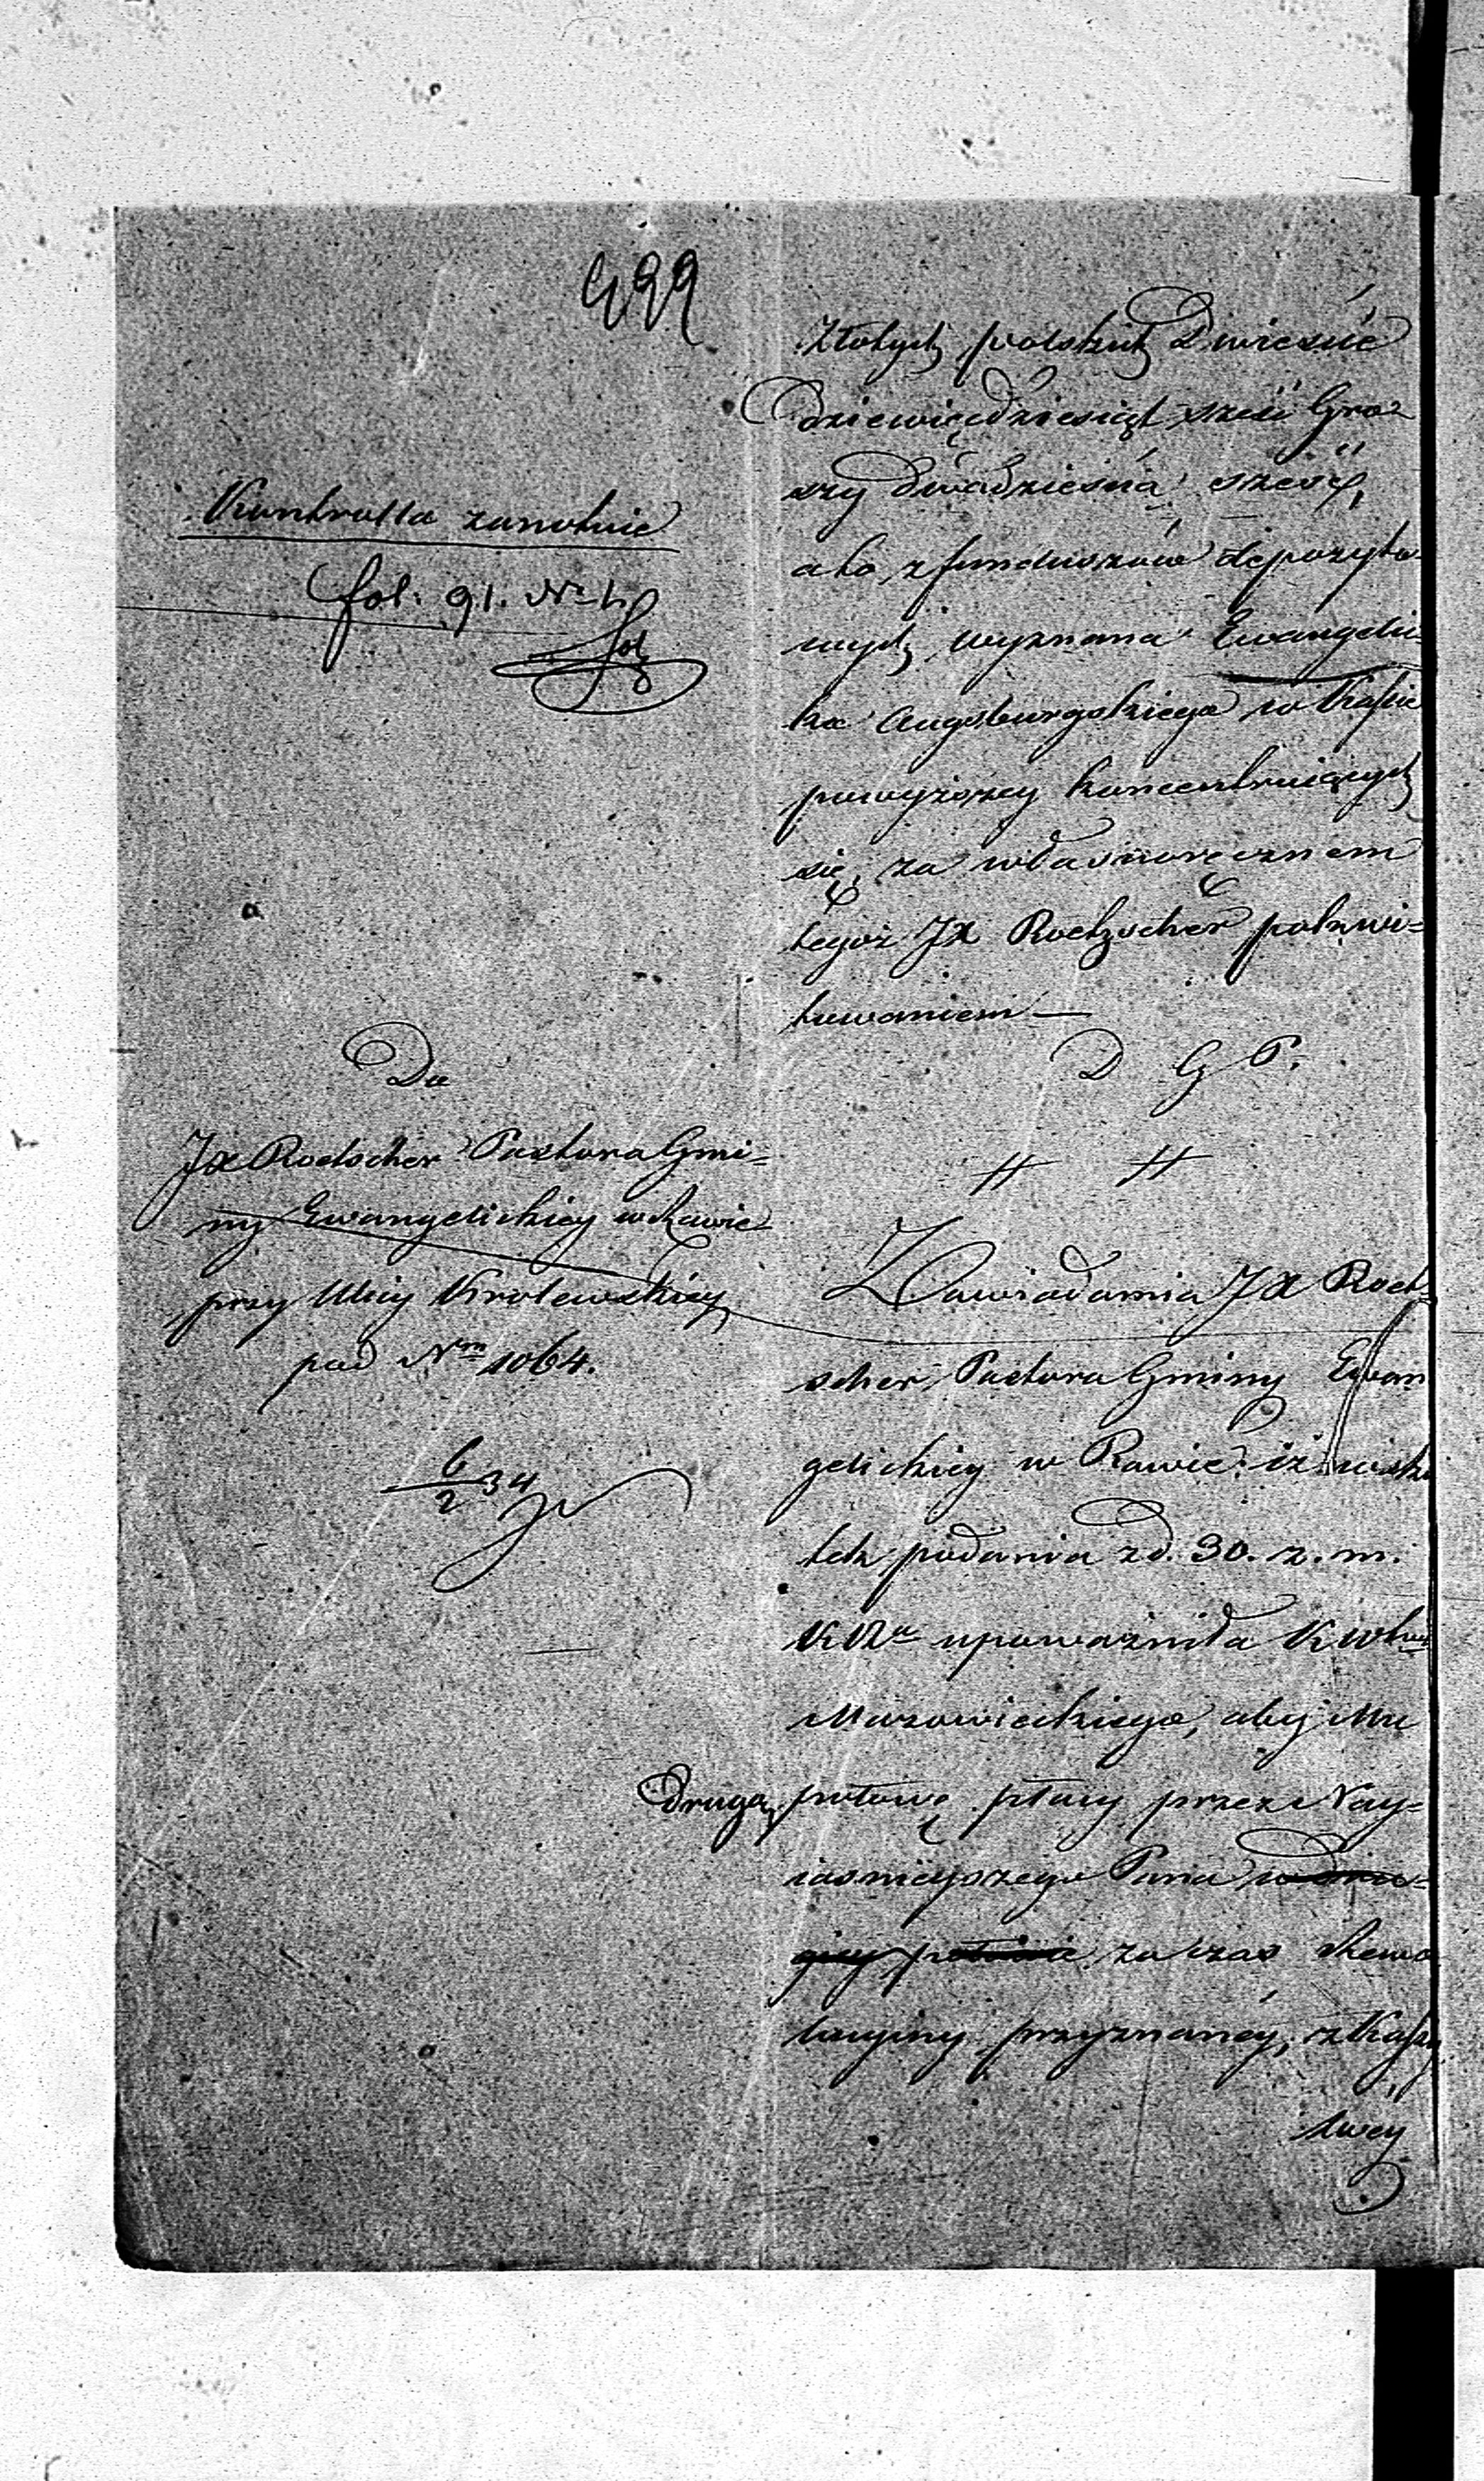 499
Kontrolla zanotuie
fol. 91. Nr 4
Do
JX Roetscher Pastora Gmi-
ny Ewangelickiey w Rawie
przy Ulicy Krolewskiey
pod Nrm 1064.
6/2 34
Złotych polskich Dwieście
Dziewięćdziesiąt sześć Gro-
szy dwadzieścia sześć,
a to z funduszów depozyto-
wych wyznania Ewangelic-
ko Augsburgskiego w Kassie
powyższey koncentruiących
się, za własnoręcznem
tegoż JX Roetscher pokwi-
towaniem —
D G P.
Zawiadamia JX Roet-
scher Pastora Gminy Ewan
gelickiey w Rawie, iż w sku
tek podania z d. 30. z. m.
KRa upoważniła KWtwa
Mazowieckiego, aby Mu
drugą połowę płacy przez Nay-
iaśnieyszego Pana w dru-
giey połowie za czas Rewo
lucyiny przyznaney, z Kassy
swey